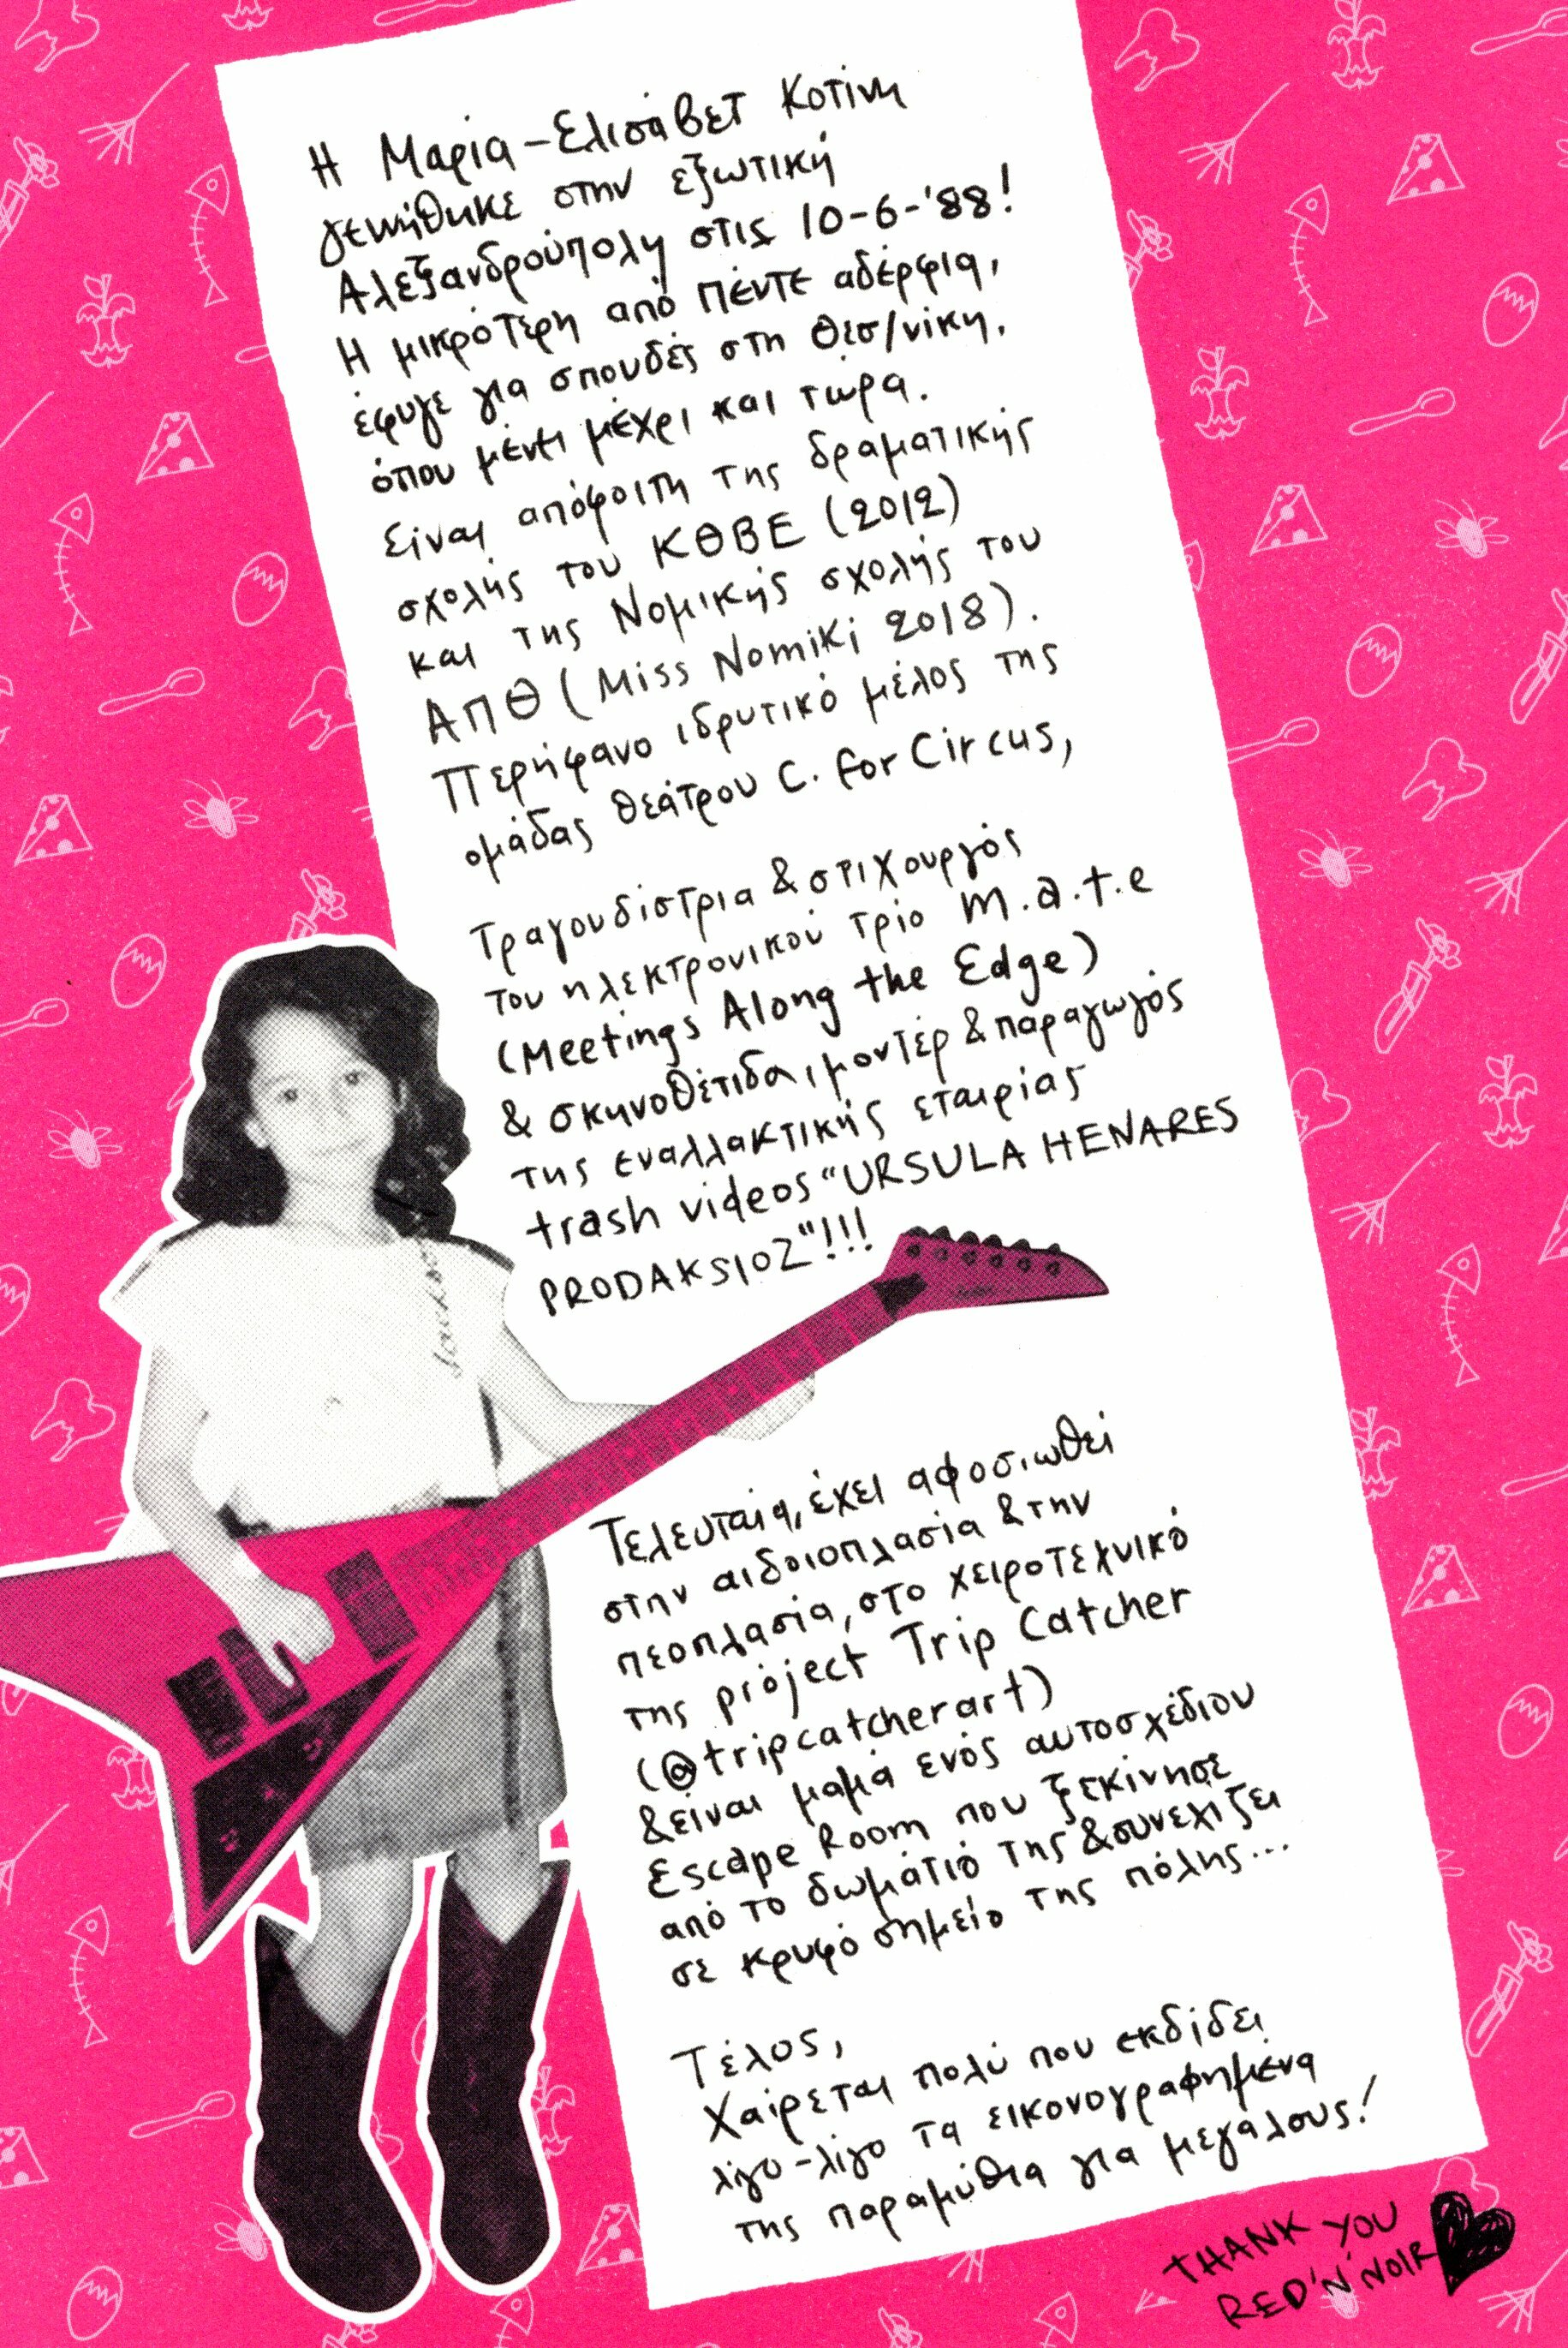 Η Μαρία-Ελισάβετ Κοτίνη
γεννήθηκε στην εξωτική
Αλεξανδρούπολη στις 10-6-'88!
Η μικρότερη από πέντε αδέρφια,
έφυγε για σπουδές στη Θεσ/νίκη,
όπου μένει μέχρι και τώρα.
Είναι απόφοιτη της δραματικής
σχολής του ΚΘΒΕ (2012)
και της Νομικής σχολής του
ΑΠΘ (Miss Nomiki 2018).
Περήφανο ιδρυτικό μέλος της
ομάδας θεάτρου C. for Circus,
τραγουδίστρια & στιχουργός
του ηλεκτρονικού τρίο m.a.t.e
(Meetings Along the Edge)
& σκηνοθέτιδα, μοντέρ & παραγωγός
της εναλλακτικής εταιρίας
trash videos "URSULA HENARES
PRODAKSIOZ"!!!
Τελευταία, έχει αφοσιωθεί
στην αιδοιοπλασία & την
πεοπλασία, στο χειροτεχνικό
της project Trip Catcher
(@tripcatcherart)
& είναι μαμά ενός αυτοσχέδιου
Escape Room που ξεκίνησε
από το δωμάτιό της & συνεχίζει
σε κρυφό σημείο της πόλης...
Τέλος,
Χαίρεται πολύ που εκδίδει
λίγο-λίγο τα εικονογραφημένα
της παραμύθια για μεγάλους!
THANK YOU
RED'N'NOIR